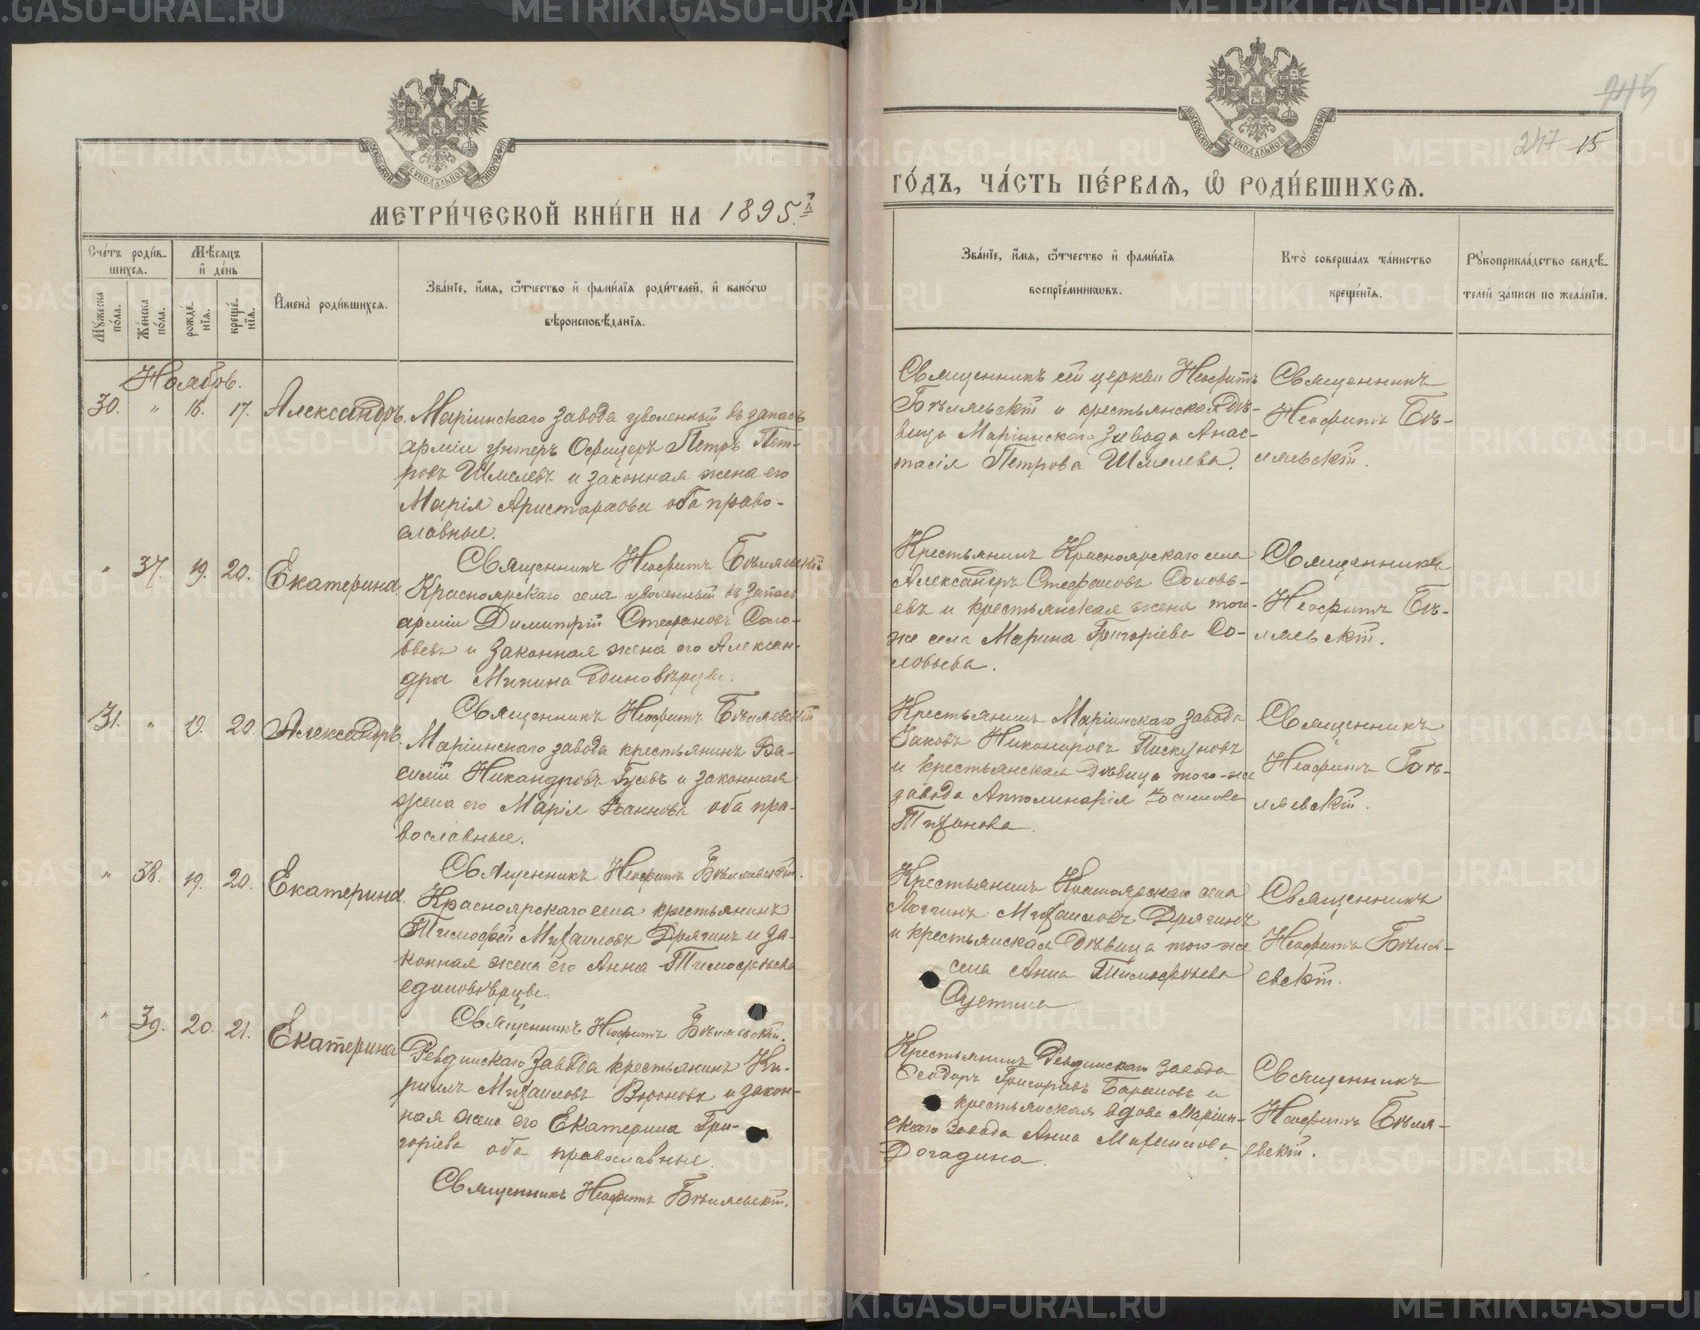 МЕТРИ́ЧЕСКОЙ КНИ́ГИ НА 1895 й
Сче́тъ роди́в-
шихся.
Мѣ́сяцъ
и҆ де́нь
Му́жеска
по́ла.
Же́нска
по́ла.
рожде́-
нїя.
креще́-
нїя.
И҆мена̀ роди́вшихся.
Зва́нїе, и҆́мя, ѻ҆́тчество и҆ фами́лїя роди́телей, и҆ како́гѡ
вѣроисповѣ́данїя.
Ноябрь.
30. " 16. 17. Александръ
Маріинскаго завода уволенный въ запасъ
арміи унтеръ Офицеръ Петръ Пет-
ровъ Шмелевъ и законная жена его
Марія Аристархова оба право-
славные.
Священникъ Неофитъ Бѣляевскій
" 37. 19. 20. Екатерина
Красноярскаго села уволенный въ запасъ
арміи Димитрій Стефановъ Соло-
вьевъ и законная жена его Алексан-
дра Минина единовѣрцы.
Священникъ Неофитъ Бѣляевскій
31. " 19. 20. Александръ
Маріинскаго завода крестьянинъ Ва-
силій Никандровъ Гусевъ и законная
жена его Марія Іоаннова оба пра-
вославные.
Священникъ Неофитъ Бѣляевскій.
" 38. 19. 20. Екатерина
Красноярскаго села крестьянинъ
Тимофей Михаиловъ Дрягинъ и за-
конная жена его Анна Тимофеева
единовѣрцы.
Священникъ Неофитъ Бѣляевскій.
" 39. 20. 21. Екатерина
Ревдинскаго завода крестьянинъ Ки-
риллъ Михаиловъ Вороновъ и закон-
ная жена его Екатерина Гри-
горіева оба православные.
Священникъ Неофитъ Бѣляевскій.
247 15
ГО́ДЪ, ЧА́СТЬ ПЕ́РВАЯ, Ѡ҆ РОДИ́ВШИХСЯ.
Зва́нїе, и҆́мя, ѻ҆́тчество и҆ фами́лїя
воспрїе́мникѡвъ.
Кто̀ соверша́лъ та́инство
креще́нїя.
Рукоприкла́дство свидѣ́-
телей за́писи по жела́нїю.
Священникъ сей церкви Неофитъ
Бѣляевскій и крестьянская дѣ-
вица Маріинскаго завода Анас-
тасія Петрова Шмелева.
Священникъ
Неофитъ Бѣ-
ляевскій.
Крестьянинъ Красноярскаго села
Александръ Стефановъ Соловь-
евъ и крестьянская жена того-
же села Марина Григоріева Со-
ловьева.
Священникъ
Неофитъ Бѣ-
ляевскій.
Крестьянинъ Маріинскаго завода
Іаковъ Никоноровъ Пискуновъ
и крестьянская дѣвица того-же
завода Апполинарія Іоаннова
Тихонова.
Священникъ
Неофитъ Бѣ-
ляевскій.
Крестьянинъ Красноярскаго села
Логгинъ Михаиловъ Дрягинъ
и крестьянская дѣвица того-же
села Анна Тимофеева
Священникъ
Неофитъ Бѣля-
евскій.
Крестьянинъ Ревдинскаго завода
Ѳеодоръ Григорьевъ Барановъ и
крестьянская вдова Маріин-
скаго завода Анна Михаилова
Догадина.
Священникъ
Неофитъ Бѣля-
евскій.
METRIKI.GASO-URAL.RU